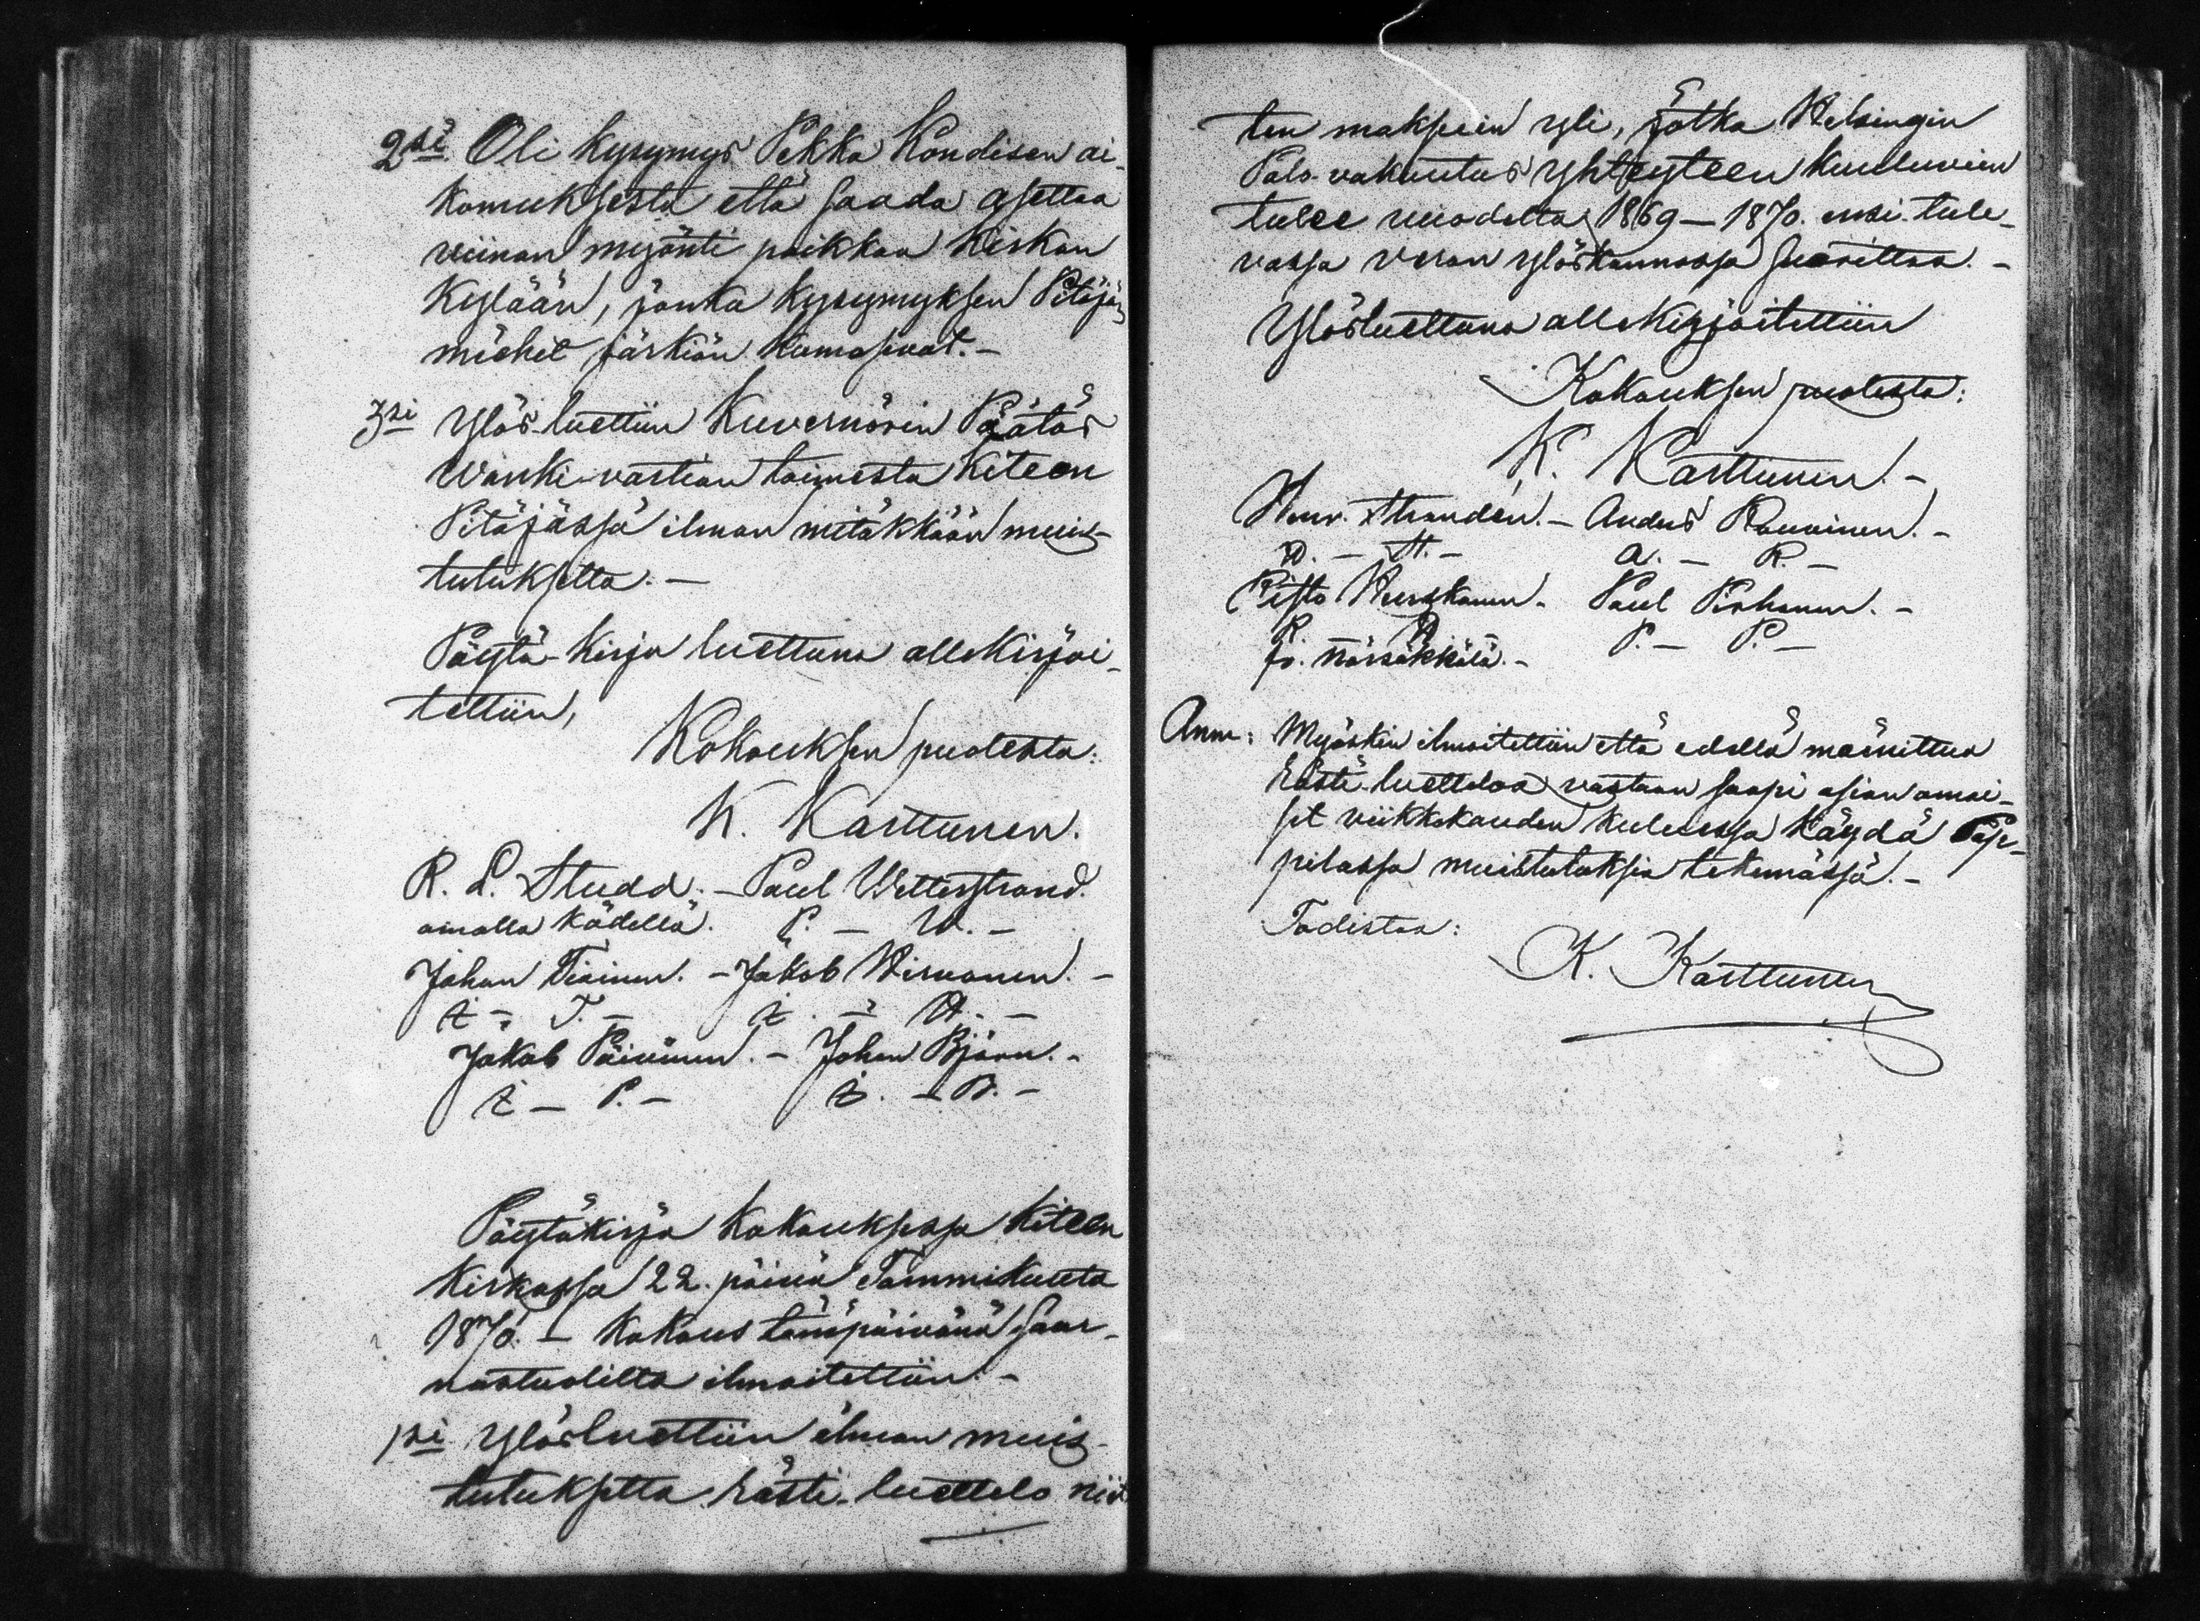 2si Oli kysymys Pekka Kondisen ai-
komuksesta että saada asettaa
viinan myönti paikkaa Kirkon
Kylään, jonka kysymyksen Pitäjä
miehet järkiän kumosivat. -
3si Ylös-luettiin Kuvernörin Päätös
Wanki-vartian toimesta Kiteen
Pitäjässä ilman mitäkkään muis-
tutuksetta. -
Pöytä-kirja luettuna allekirjoi-
tettiin,
Kokouksen puolesta:
K. Karttunen.
R. L. Studd. - Paul Wetterstrand.
omalla kädellä. P. - W. -
Johan Tiainen. - Jakob Hirvonen. -
J. - T. - J. - H. -
Jakob Päivinen. - Johan Björn. -
J. - P. - J. - B. -
Pöytäkirja Kokouksessa Kiteen
Kirkossa 22. päivä Tammikuuta
1870. - Kokous tänäpäivänä Saar-
nastuolilta ilmoitettiin. -
1si Ylösluettiin ilman muis-
tutuksetta Rästi-luettelo niit
ten maksoin yli, jotka Helsingin
Palo-vakuutus yhteyteen kuuluvien
tulee vuodelta 1869-1870. ensi tule-
vassa veron ylöskannossa suorittaa. -
Ylösluettuna allekirjoitettiin
Kokouksen puolesta:
K. Karttunen. -
Henr. Strandén. - Anders Rouvinen. -
H. - St. - A. - R. -
Risto Hurskanen. - Paul Pirhonen. -
R. H. P. - P. -
fr. Närsäkkälä. -
Anm: Myöskin ilmoitettiin että edellä mainittua
Rästi-luetteloa vastaan saapi asian omai-
set viikkokauden kuluessa käydä Pap-
pilassa muistutuksia tekemässä. -
Todistaa:
K. Karttunen